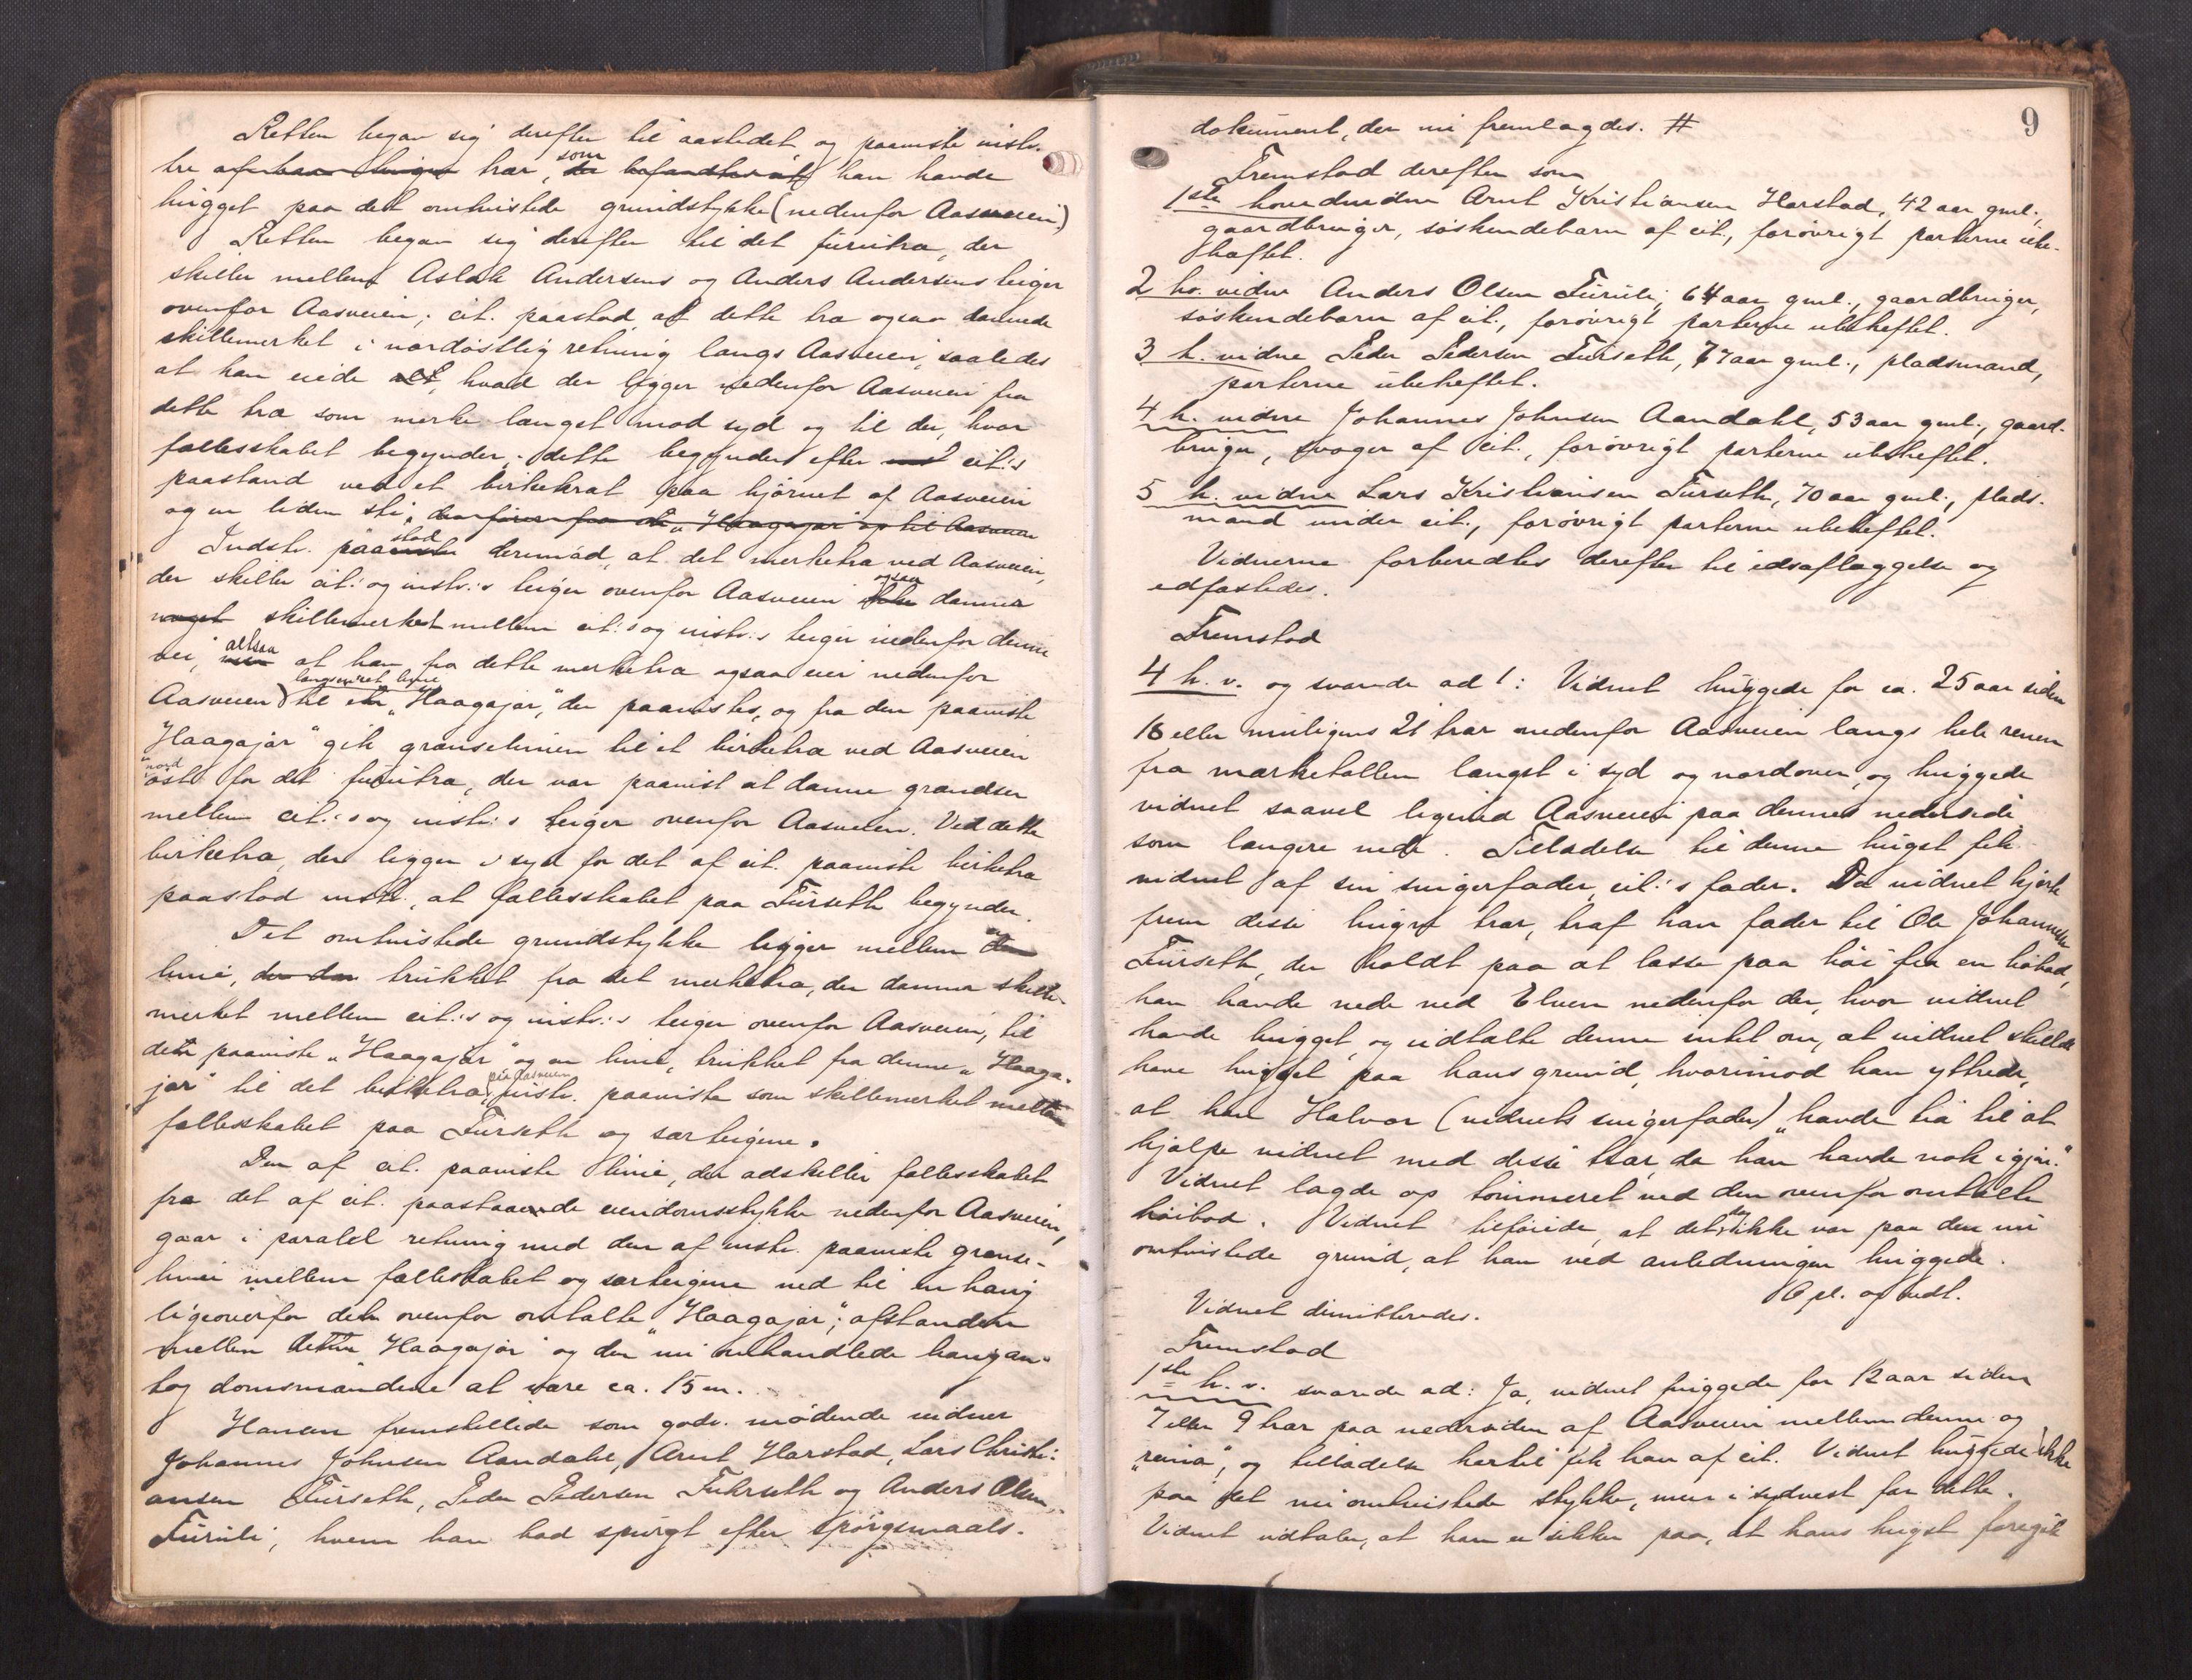 Retten begav sig derefter til aastedet og paaviste instr.
tre af ham hugne trær, som han havde
hugget paa det omtvistede grundstykke (nedenfor Aasveien)
Retten begav sig derefter til det furutræ, der
skiller mellem Aslak Andersens og Anders Andersens teiger
ovenfor Aasveien; cit. paastod, at dette træ ogsaa dannede
skillemerket i nordöstlig retning langs Aasveien, saaledes
at han eiede alt, hvad der ligger nedenfor Aasveien fra
dette træ som merke længst mod syd og til der, hvor
fællesskabet begynder; dette begynder efter cit:s
paastand ved et birkekrat paa hjörnet af Aasveien
og en liden sti, der förer fra den "Haagajar" op til Aasveien
Indstv. paastod derimod, at det merketræ ved Aasveien,
der skiller cit:s og instv:s teiger ovenfor Aasveien ogsaa danner
noget skillemerket mellem cit:s og instv:s teiger nedenfor denne
vei, altsaa at han fra dette merketræ ogsaa eier nedenfor
Aasveien til "Haagajar", der paavistes, og fra den paaviste
"Haagajar" gik grænselinien til et birketræ ved Aasveien
nordöst for det furutræ, der var paavist at danne grændsen
mellem cit:s og instv:s teiger ovenfor Aasveien. Ved dette
birketræ, der ligger i syd for det af cit. paaviste birketræ
paastod instv., at fællesskabet paa Furseth begynder.
Det omtvistede grundstykke ligger mellem den
linie, der der trukket fra det merketræ, der danner skille-
merket mellem cit:s og instv:s teiger ovenfor Aasveien, til
den paaviste "Haagajar" og en linie, trukket fra denne "Haaga-
jar" til det birketræ, paa Aasveien instv. paaviste som skillemerket mellem
fællesskabet paa Furseth og særteigene.
Den af cit. paaviste linie, der adskiller fællesskabet
fra det af cit. paastaaende eiendomsstykke nedenfor Aasveien,
gaar i paralel retning med den af instv. paaviste grænse-
linie mellem fællesskabet og særteigene ned til en haug
ligeoverfor den ovenfor omtalte "Haagajar"; afstanden
mellem denne "Haagajar" og den nu omhandlede haug an-
tog domsmændene at være ca. 15 m.
Hansen fremstillede som godv. mödende vidner
Johannes Johnsen Aandahl, Arnt Harstad, Lars Christi-
ansen Furseth, Peder Pedersen Fuhrseth og Anders Olsen
Furuli, hvem han bad spurgt efter spörgsmaals-
9
dokument, der nu fremlagdes. #
Fremstod derefter som
1ste hovedvidne Arnt Kristiansen Harstad, 42 aar gml.,
gaardbruger, söskendebarn af cit., forövrigt parterne ube-
hæftet.
2 hv. vidne Anders Olsen Furuli, 64 aar gml., gaardbruger,
söskendebarn af cit., forövrigt parterne ubeheftet.
3 h. vidne Peder Pedersen Furseth, 67 aar gml., pladsmand,
parterne ubeheftet.
4 h. vidne Johannes Johnsen Aandahl, 53 aar gml., gaard-
bruger, svoger af cit., forövrigt parterne ubeheftet.
5 h. vidne Lars Kristiansen Furseth, 70 aar gml., plads-
mand under cit., forövrigt parterne ubeheftet.
Vidnerne forberedtes derefter til edsaflæggelse og
edfæstedes.
Fremstod
4 h. v. og svarede ad 1: Vidnet huggede for ca. 25 aar siden
18 eller muligens 21 trær nedenfor Aasveien langs hele renen
fra mærketallen længst i syd og nordover, og huggede
vidnet saavel ligeved Aasveien paa dennes nederside
som længere nede. Tilladelse til denne hugst fik
vidnet af sin svigerfader, cit:s fader. Da vidnet kjörte
frem disse hugne trær, traf han fader til Ole Johannesen
Furseth, der holdt paa at lasse paa höi fra en höbod,
han havde nede ved Elven nedenfor der, hvor vidnet
havde hugget, og udtalte denne intet om, at vidnet skulde
have hugget paa hans grund, hvorimod han ytrede,
at han Halvor (vidnets svigerfader) "havde traa til at
hjælpe vidnet med disse trær, da han havde nok igjen."
Vidnet lagde op tömmeret ved den ovenfor omtalte
höibod. Vidnet tilföiede, at det ikke var paa den nu
omtvistede grund, at han ved anledningen huggede.
Opl. og vedt.
Vidnet dimitteredes.
Fremstod
1ste h. v. svarede ad: Ja, vidnet huggede for 12 aar siden
7 eller 9 trær paa nedersiden af Aasveien mellem denne og
"reina", og tilladelse hertil fik han af cit. Vidnet huggede ikke
paa det nu omtvistede stykke, men i sydvest for dette.
Vidnet udtaler, at han er sikker paa, at hans hugst foregik